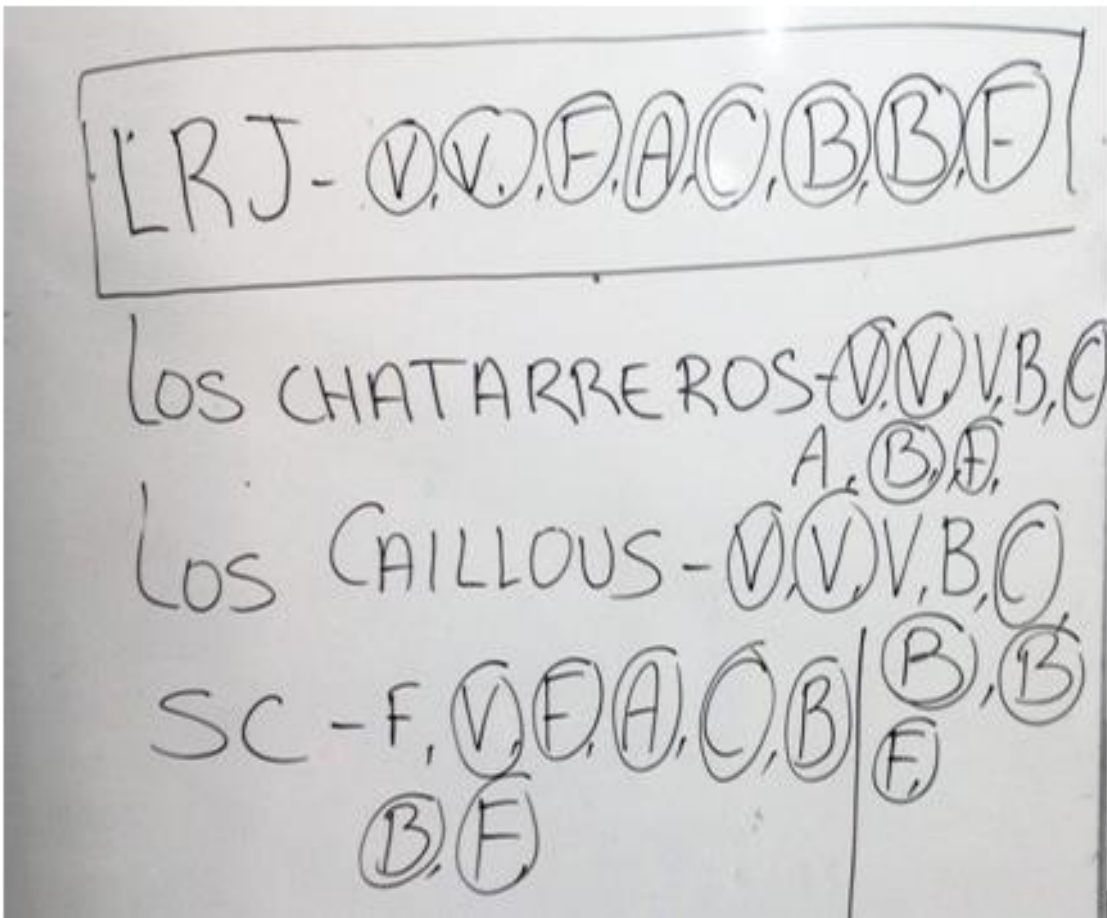 LRJ - V, V, F, A, C, B, B, F
LOS CHATARREROS - V, V, V, B, C
A, B, F.
LOS CAILLOUS - V, V, V, B, C,
B, B
F,
SC - F, V, F, A, C, B
B, F